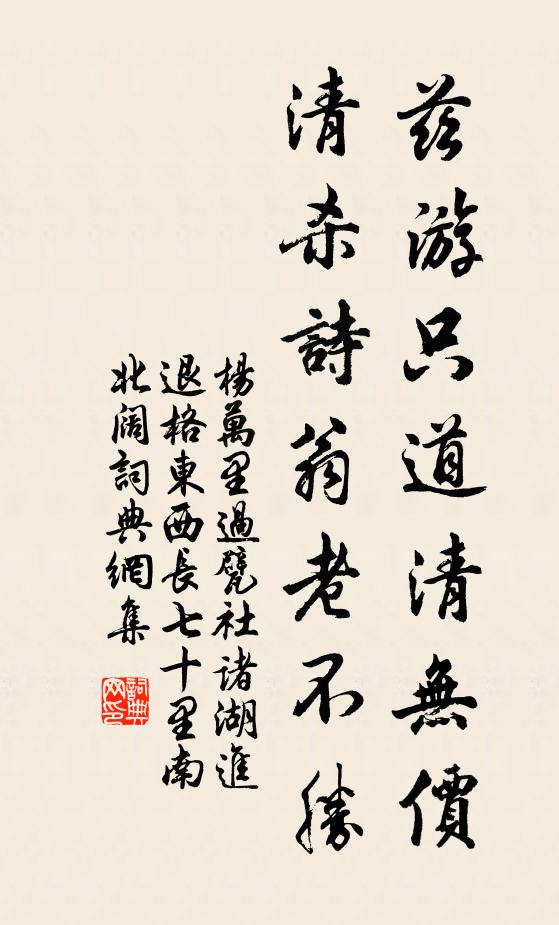 茲游只道清無價
清杀詩翁老不勝
楊萬里過甓社諸湖進
退格東西長七十里南
北阔詞典網集
詞典网印